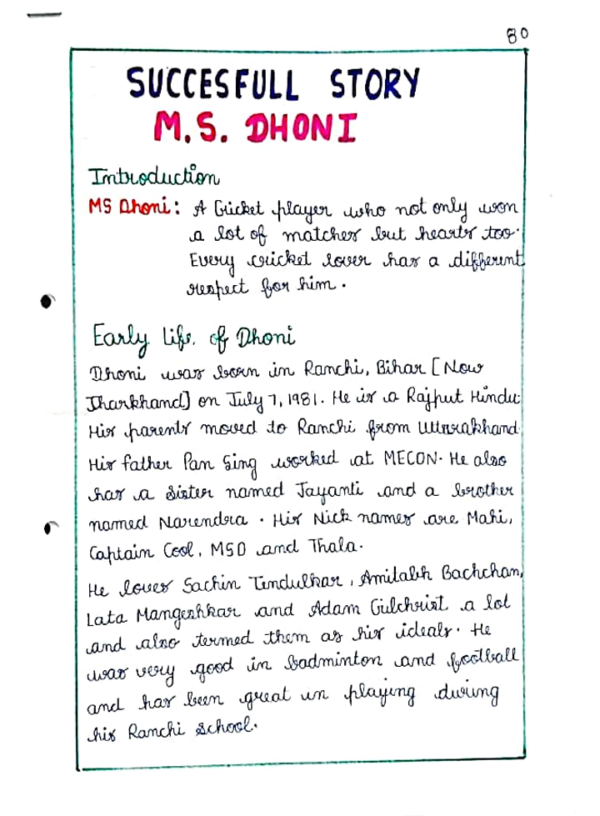 80
SUCCESFULL STORY
M.S. DHONI
Introduction
MS Dhoni: A Cricket player who not only won
a lot of matches but hearts too.
Every cricket lover has a different
respect for him.
Early Life of Dhoni
Dhoni was born in Ranchi, Bihar [Now
Jharkhand] on July 7, 1981. He is a Rajput Hindu
His parents moved to Ranchi from Uttarakhand.
His father Pan Sing worked at MECON. He also
has a sister named Jayanti and a brother
named Narendra. His Nick names are Mahi,
Captain Cool, MSD and Thala.
He loves Sachin Tendulkar, Amitabh Bachchan,
Lata Mangeshkar and Adam Gilchrist a lot
and also termed them as his ideals. He
was very good in badminton and football
and has been great in playing during
his Ranchi school.